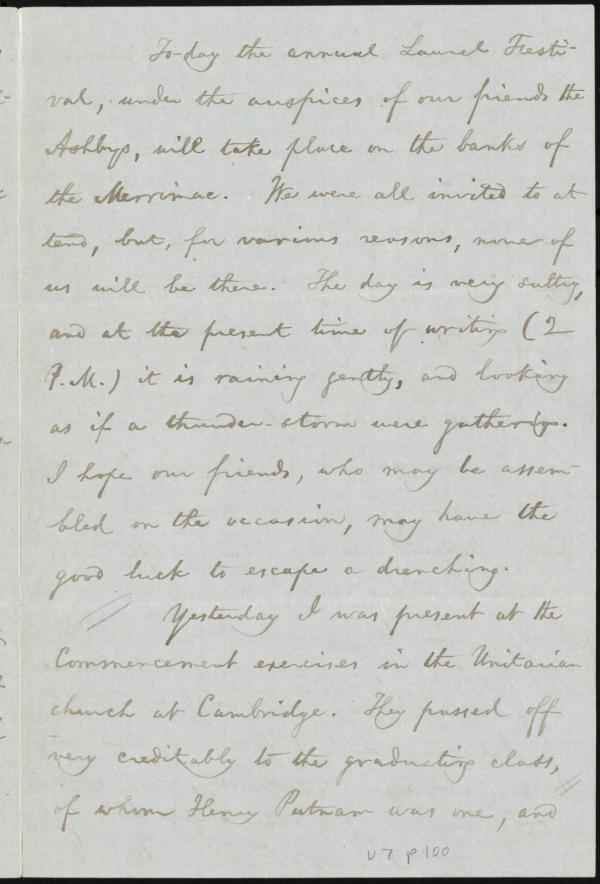 To-day the annual Laurel Festi-
val, under the auspices of our friends the
Ashbys, will take place on the banks of
the Merrimac. We were all invited to at
tend, but, for various reasons, none of
us will be there. The day is very sultry,
and at the present time of writing (2
P.M.) it is raining gently, and looking
as if a thunder-storm were gathering.
I hope our friends, who may be assem-
bled on the occasion, may have the
good luck to escape a drenching.
Yesterday I was present at the
Commencement exercises in the Unitarian
church at Cambridge. They passed off
very creditably to the graduating class,
of whom Henry Putnam was one, and
v7 p100